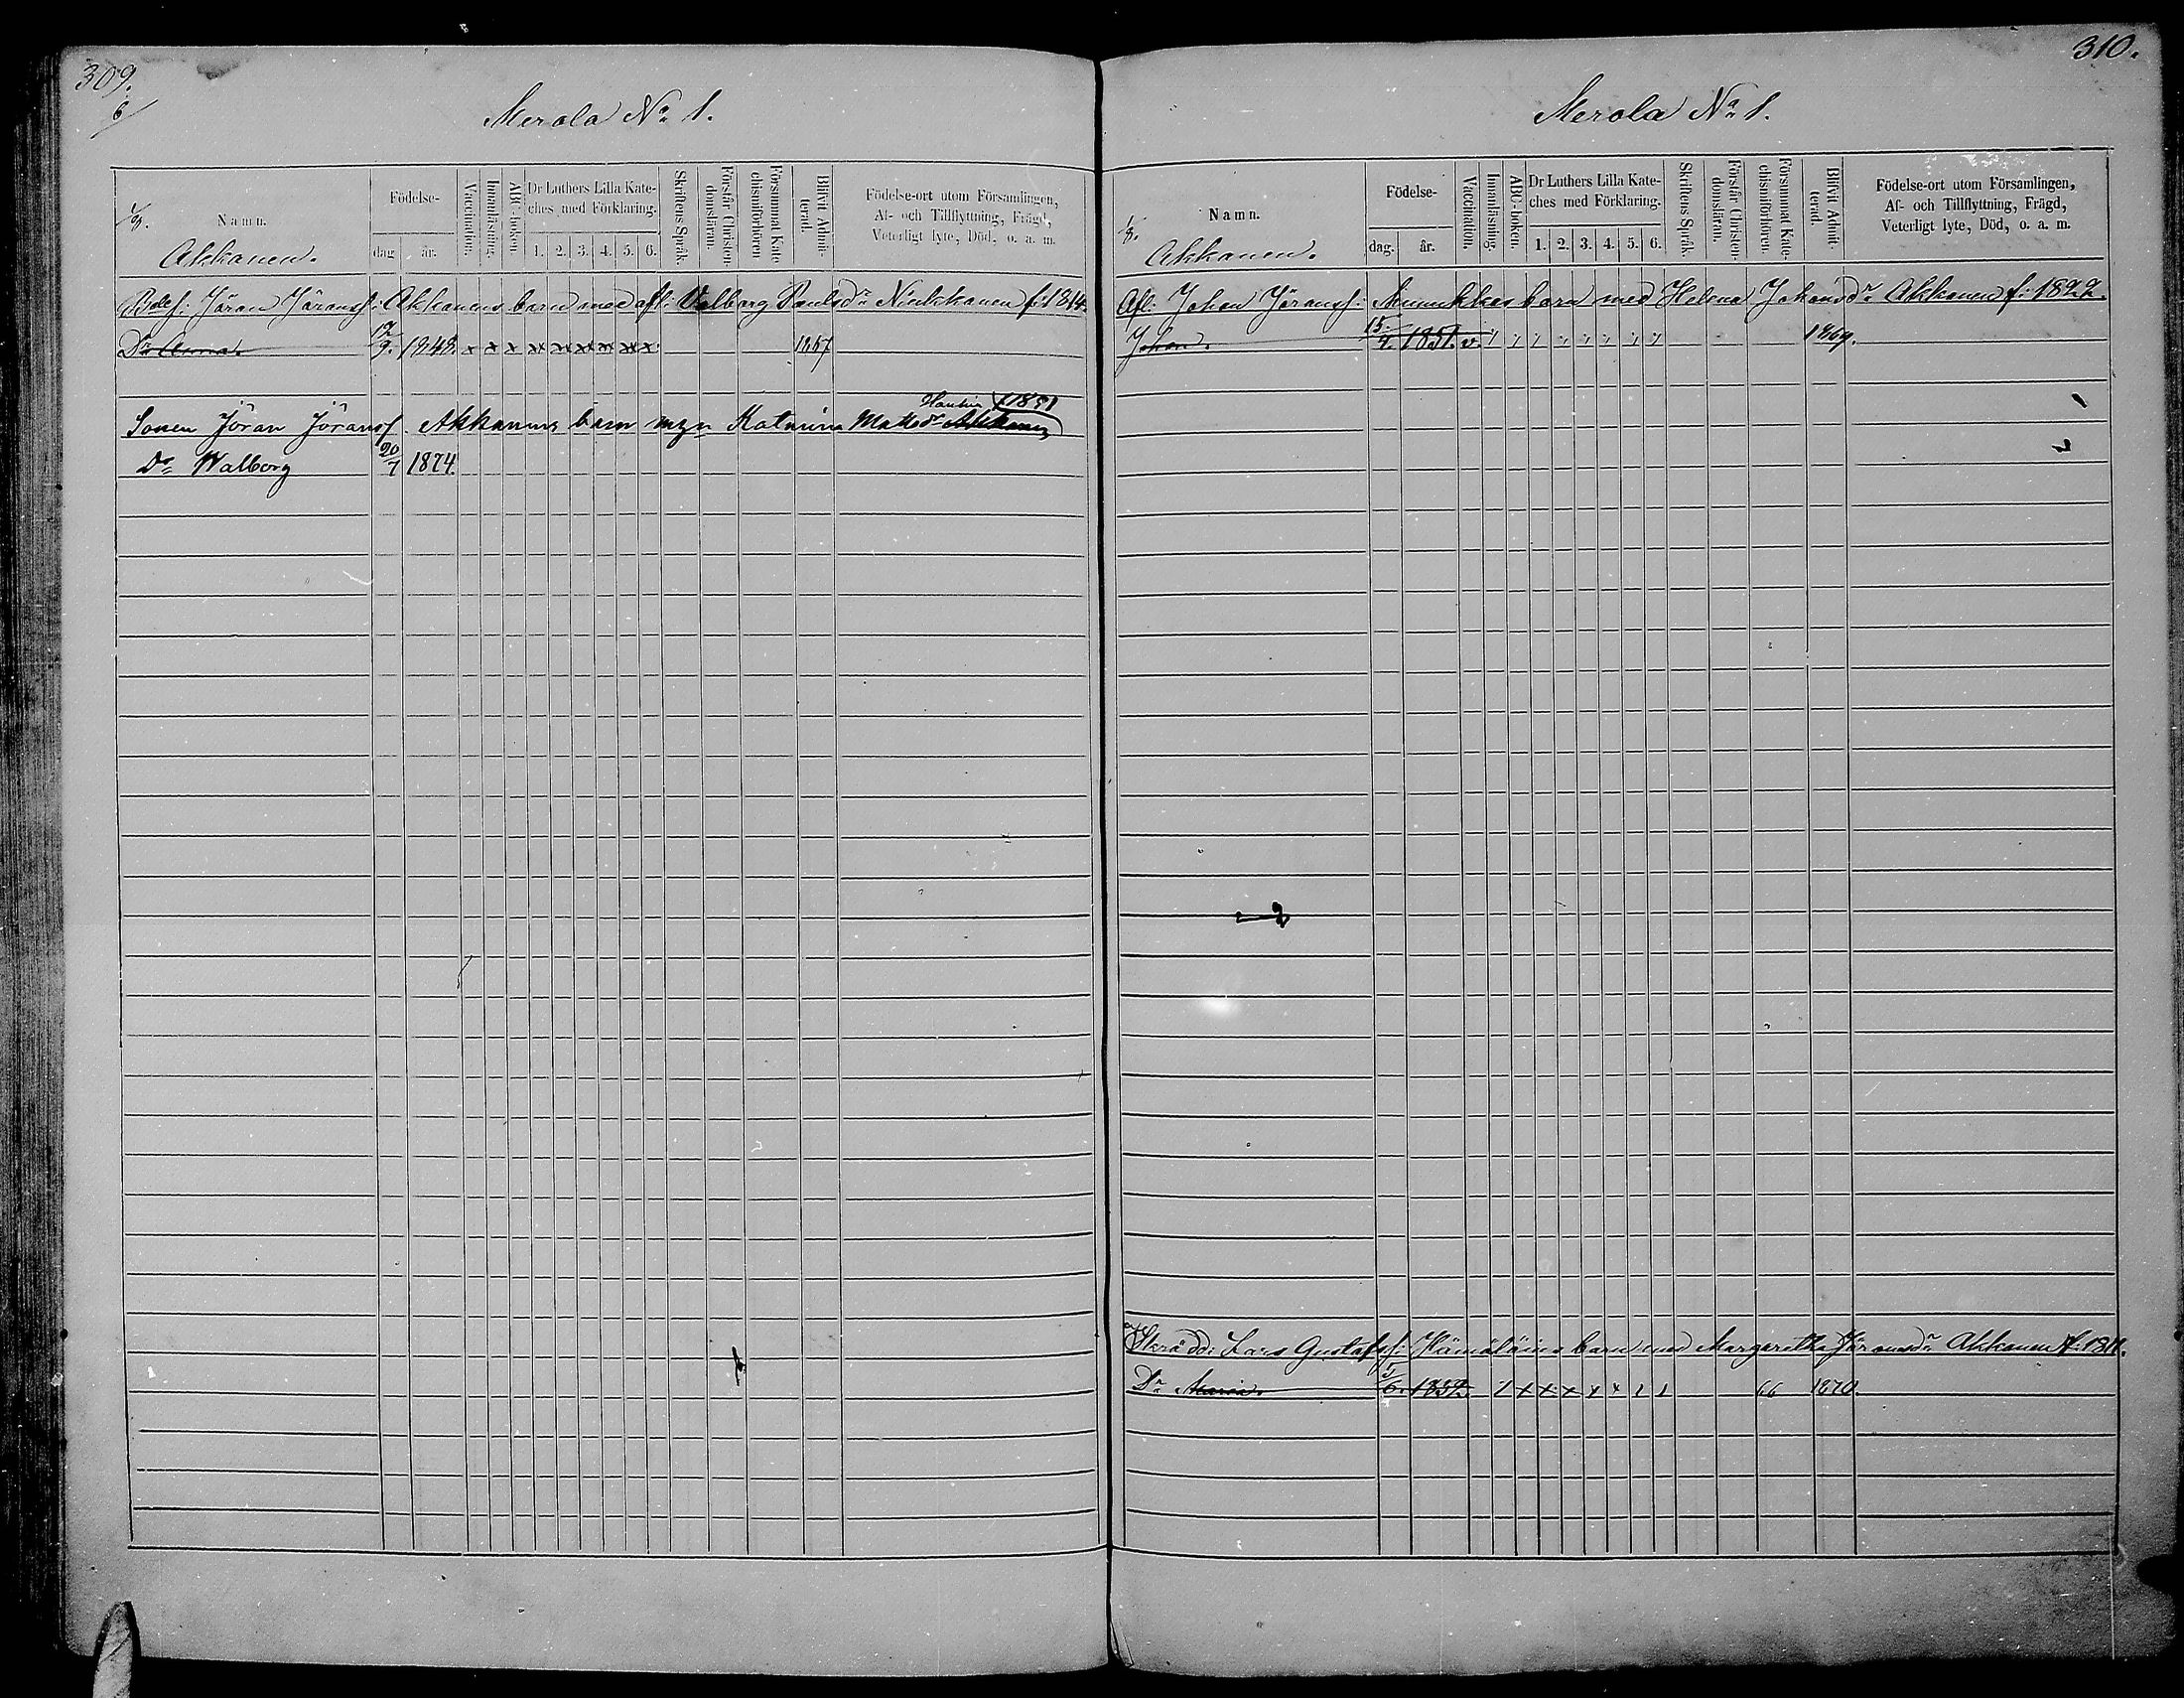 309.
6/
Merola No 1.
1/8.
Namn.
Akkanen.
Födelse-
dag
år.
Vaccination.
Innanläsning.
ABC-boken.
Dr Luthers Lilla Kate-
ches med Förklaring.
1. 2. 3. 4. 5. 6.
Skriftens Språk.
Förstår Christen-
domsläran.
Försummat Kate-
chismiförhören
Blifvit Admit-
terad.
Födelse-ort utom Församlingen,
Af- och Tillflyttning, Frägd,
Veterligt lyte, Död, o. a. m.
Jöran Jöranss: Akkanens barn med afl: Valborg Paulsdr Ninkkanen f: 1814.
Dr Anna. 17/9. 1848. x x x x x x x x x 1867
Hautia f 1851
Sonen Jöran Jöranss Akkanens barn m Katarina Mattsdr Akkanen
Dr Walborg 20/7 1874.
310.
Merola No 1.
1/8.
Namn.
Akkanen.
Födelse-
dag.
år.
Vaccination.
Innanläsning.
ABC-boken.
Dr Luthers Lilla Kate-
ches med Förklaring.
1. 2. 3. 4. 5. 6.
Skriftens Språk.
Förstår Christen-
domsläran.
Försummat Kate-
chismiförhören.
Blifvit Admit-
terad.
Födelse-ort utom Församlingen,
Af- och Tillflyttning, Frägd,
Veterligt lyte, Död, o. a. m.
Afl: Johan Jöranss: Munukkas barn med Helena Johansdr Akkanen f: 1822.
Johan. 15/4. 1851. v. 1869.
Skrädd: Lars Gustafss: Hämäläins barn med Margaretha Jöransdr Akkanen f: 1811.
Dr Maria. 5/6. 1852. 66 1870